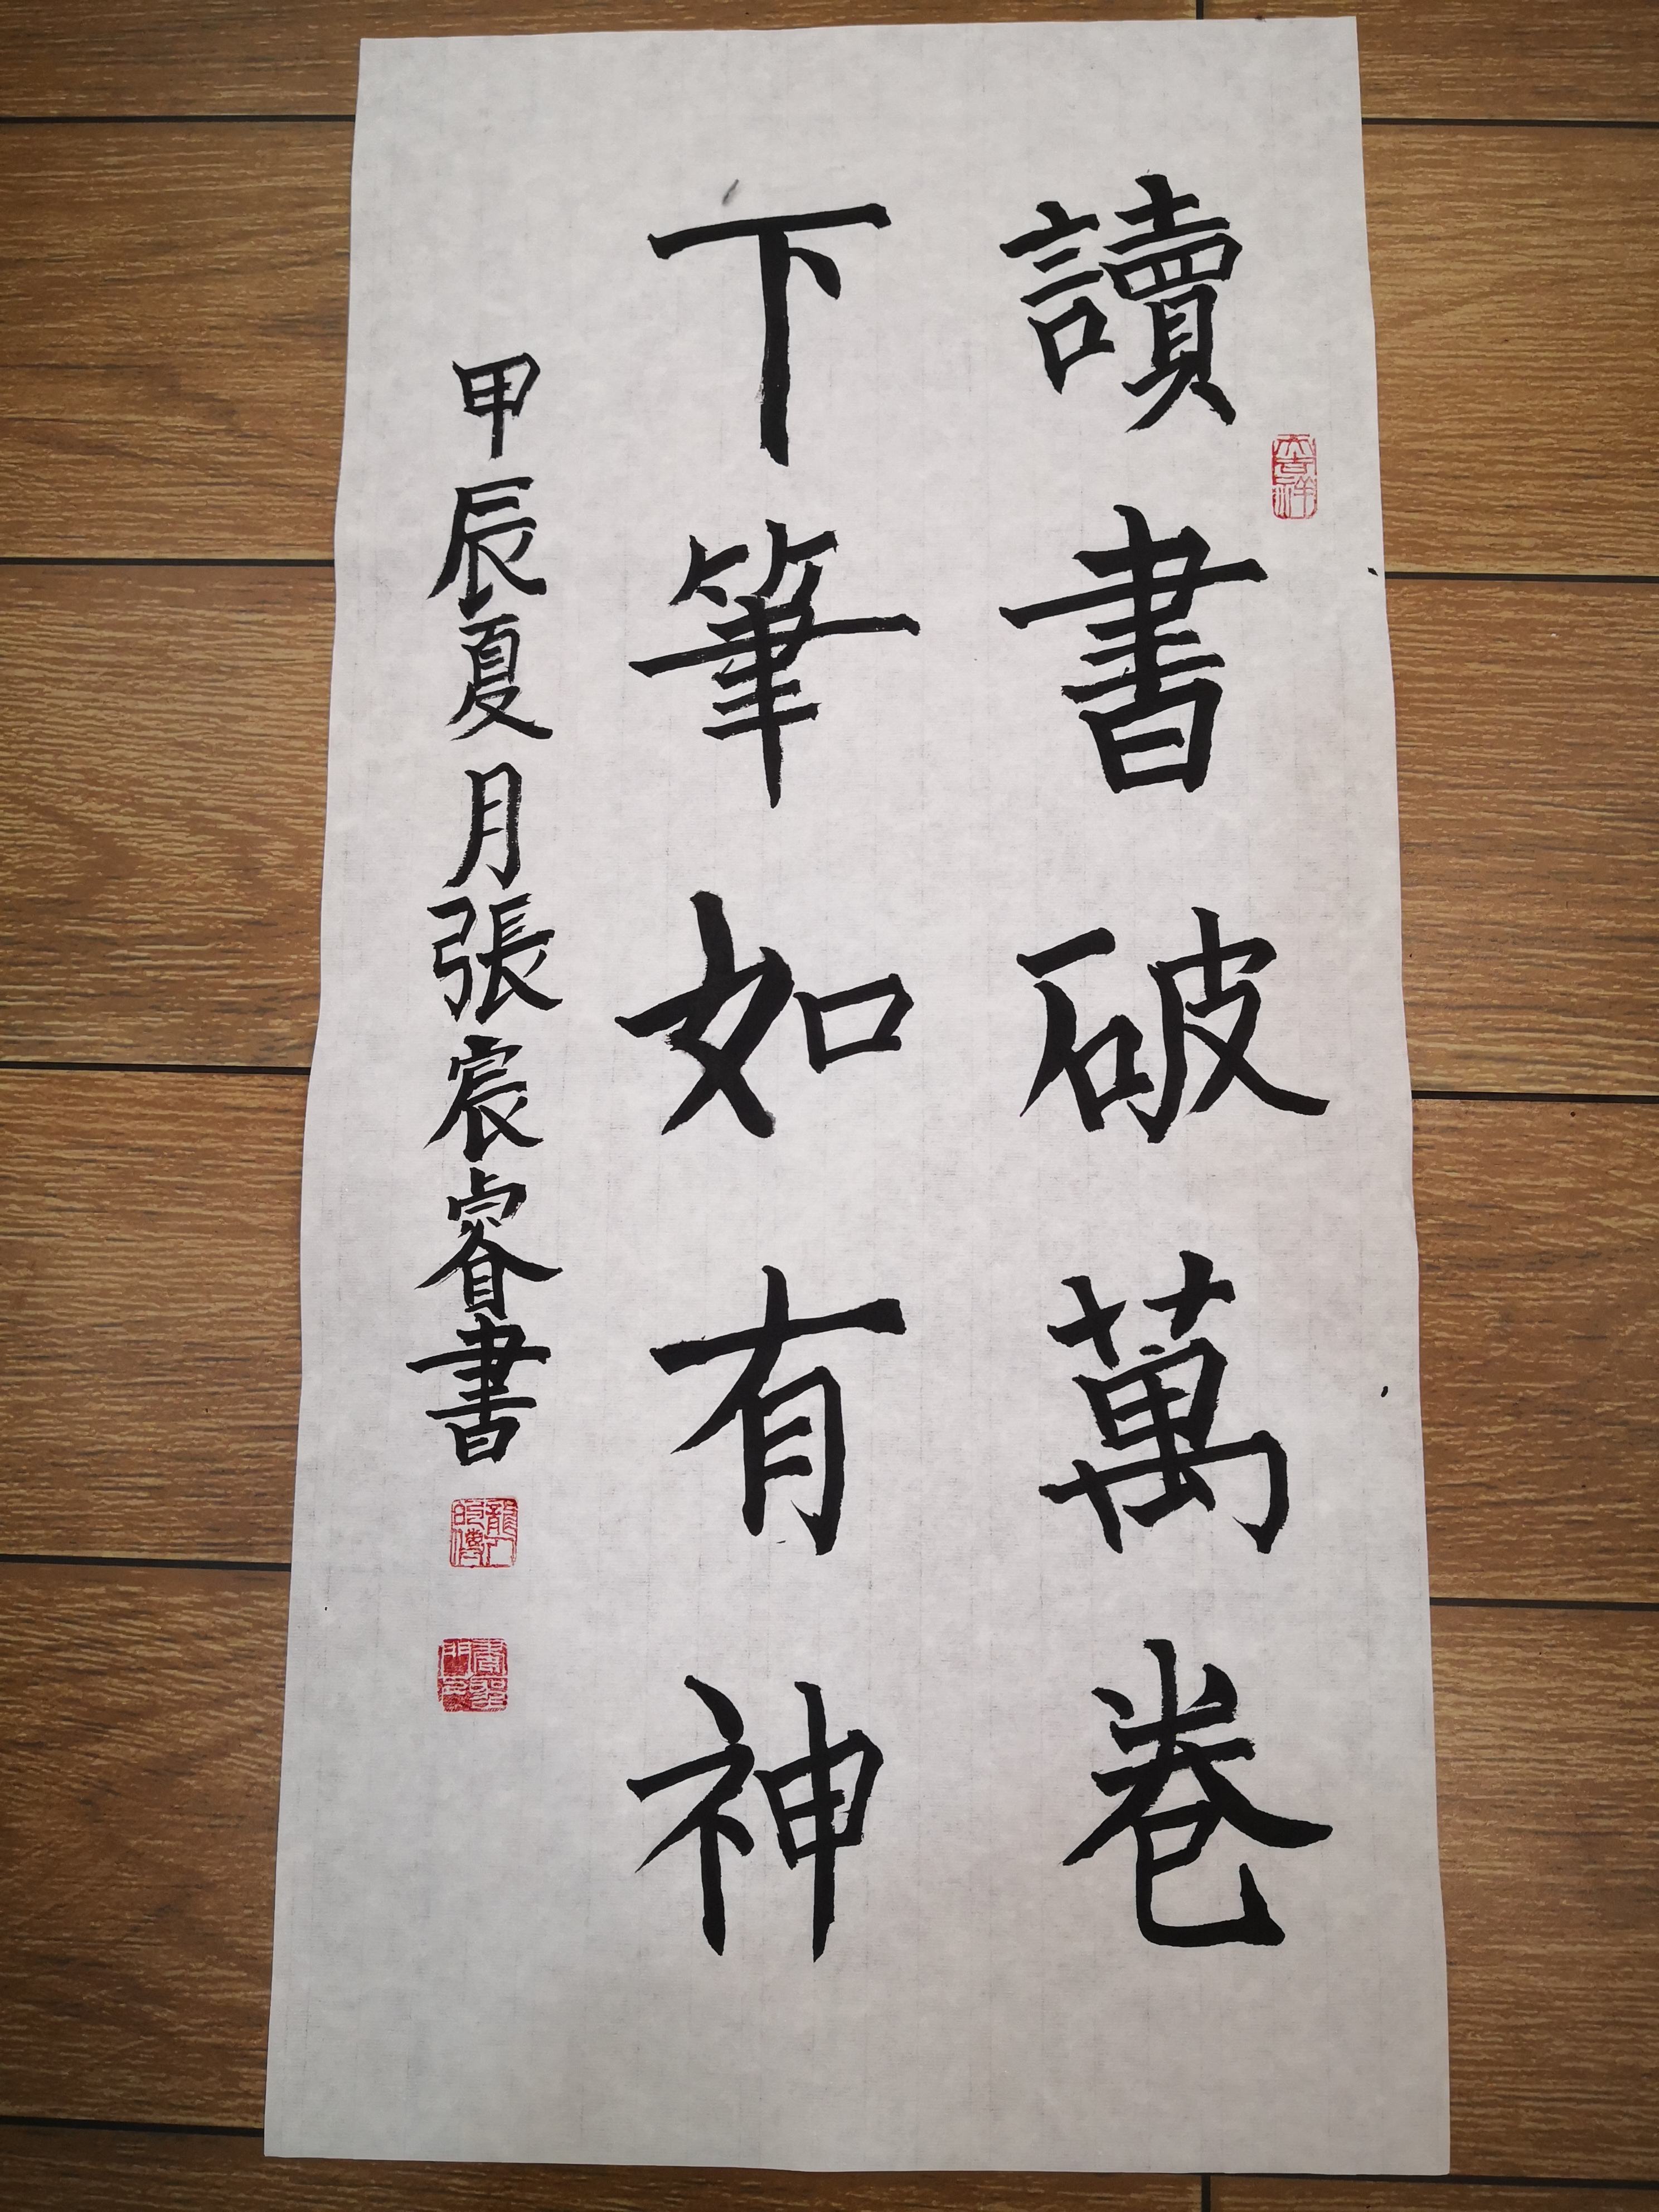 讀書破萬卷
下筆如有神
甲辰夏月張宸睿書